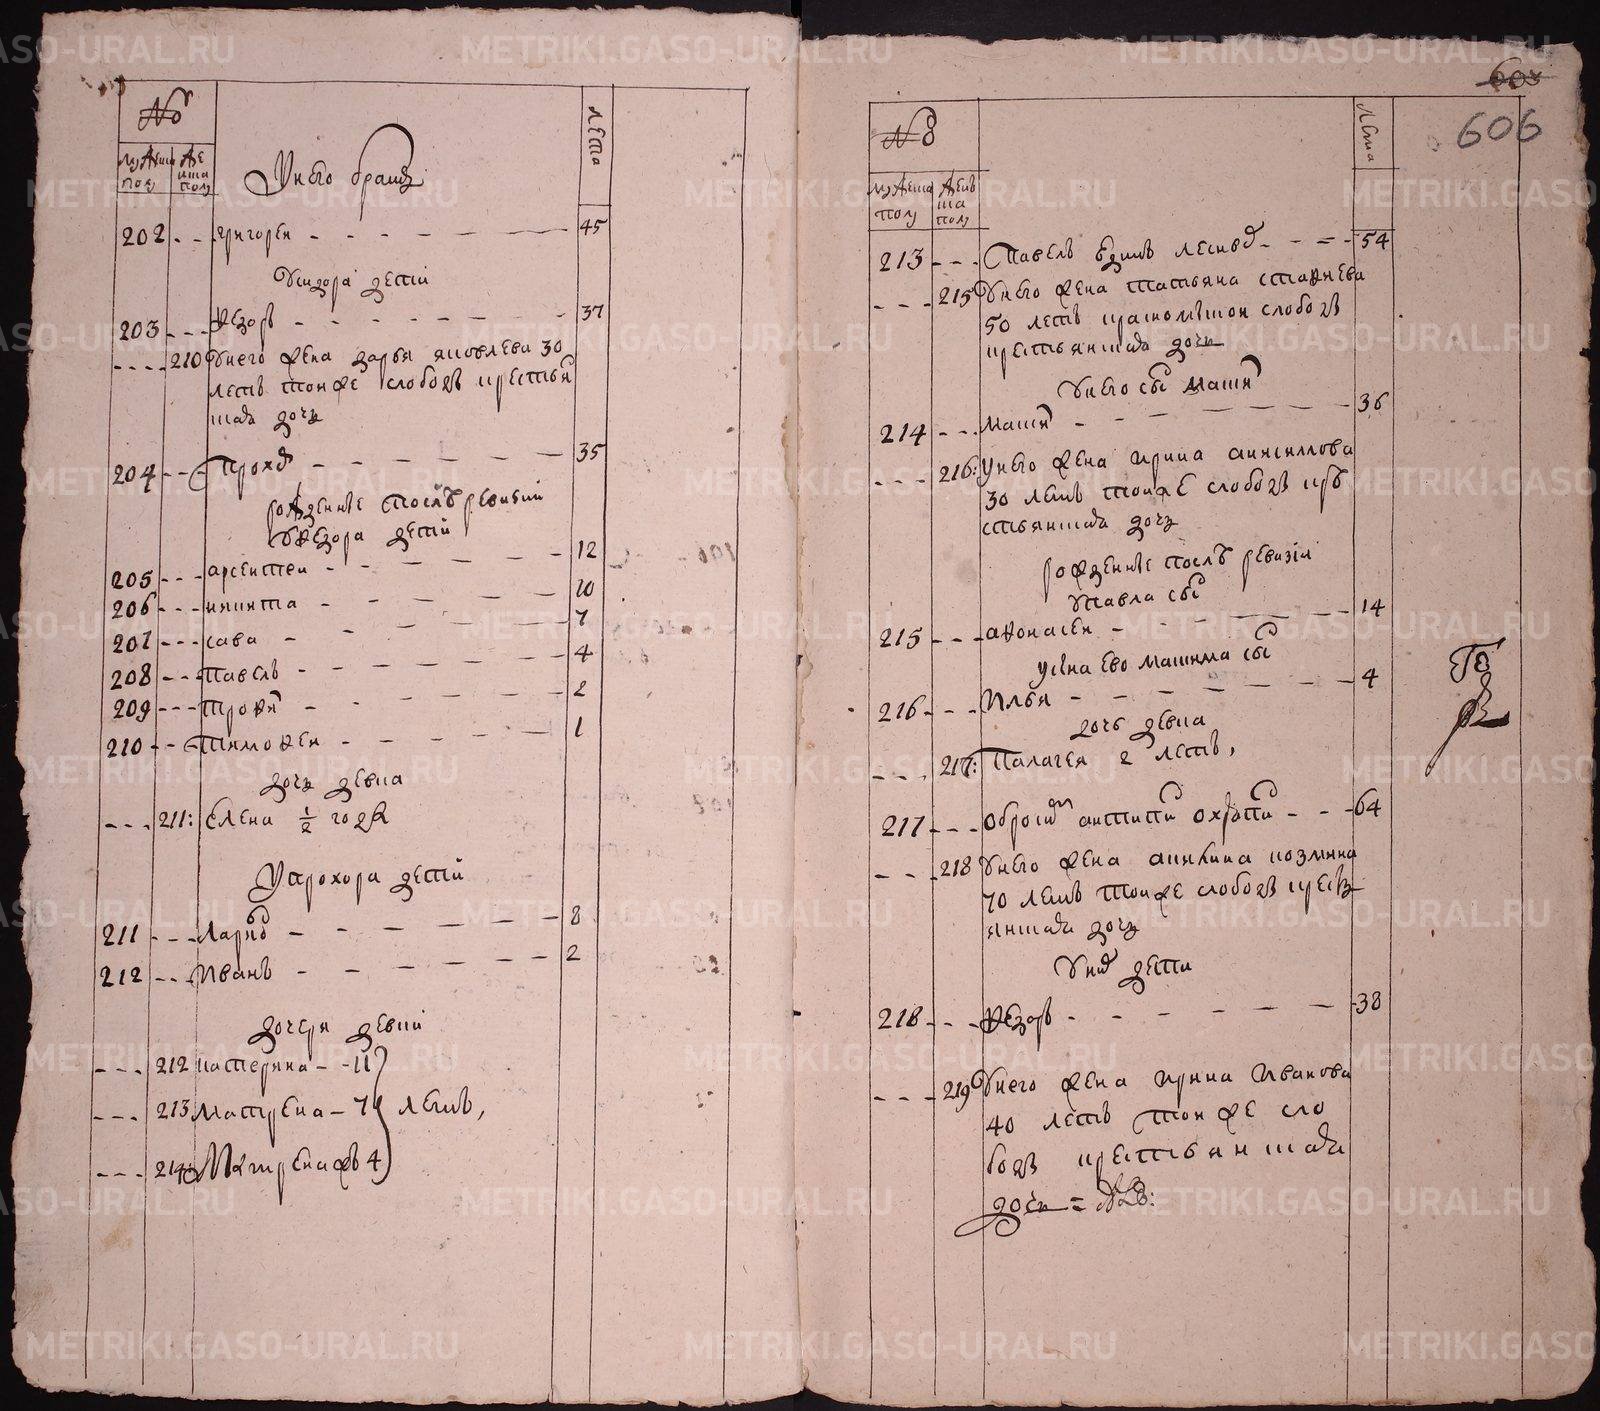 №
мужеска полу
женска полу
лета
У него братъ
202 григореи 45
У сидора детеи
203 Федоръ 37
210 У него жена дарья яковлева 30
летъ тои же слободы крестья
нская дочь
204 Прохоръ 35
рожденные после ревизии
У Федора детеи
205 арсентеи 12
206 никита 10
207 сава 7
208 Павелъ 4
209 трофи 2
210 тимофеи 1
дочь девка
211: Елена ½ года
У прохора детеи
211 Ларио 8
212 Иванъ 2
дочери девки
212 катерина 11
213 матрена 7 летъ,
214 Матрена жъ 4
603
606
№
мужеска полу
женска полу
лета
213 Павелъ 54
215 У него жена татьяна
50 летъ слободы
крестьянская дочь
У него сынъ
214 36
216: У него жена ирина
30 летъ тои же слободы кре
стьянская дочь
рожденные после ревизии
У павла сынъ
215 афонасеи 14
У сна ево сынъ
216 Илья 4
дочь девка
217: Палагея 2 летъ,
217 64
218 У него жена козмина
70 летъ тои же слободы кресть
янская дочь
У них дети
218 Федоръ 38
219 У него жена ирина Иванова
40 летъ тои же сло
боды крестьянская
дочь =